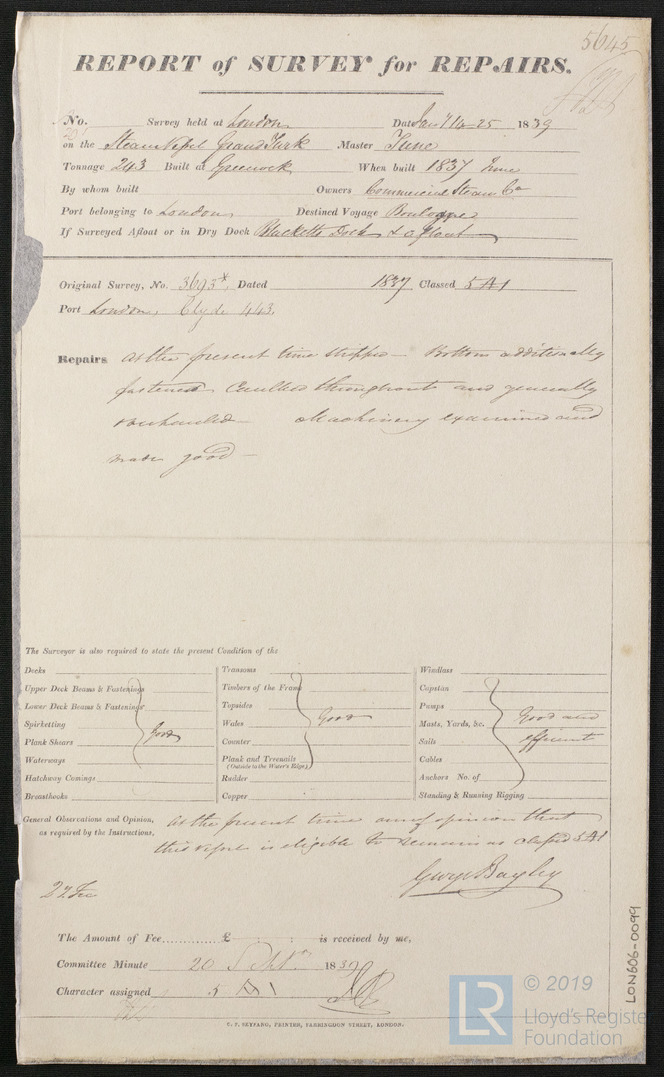 5645
REPORT of SURVEY for REPAIRS.
No. Survey held at London Date 14-25 1839
on the Steam Vessel Grand Turk Master Tune
Tonnage 243 Built at Greenock When built 1837 June
By whom built Owners Commercial Steam Co
Port belonging to London Destined Voyage Boulogne
If Surveyed Afloat or in Dry Dock Blacketts Dock & afloat
Original Survey, No. 3693* Dated 1837 Classed 5 A1
Port London, Clyde 443.
Repairs At the present time stripped - Bottom additionally
fastened Caulked throughout and generally
overhauled - Machinery examined and
made good -
The Surveyor is also required to state the present Condition of the
Decks Transoms Windlass
Upper Deck Beams & Fastenings Timbers of the Frame Capstan
Lower Deck Beams & Fastenings Topsides Pumps
Spirketting Good Wales Good Masts, Yards, &c. Good and
Plank Shears Counter Sails efficient
Waterways Plank and Treenails Cables
(Outside to the Water's Edge)
Hatchway Comings Rudder Anchors No. of
Breasthooks Copper Standing & Running Rigging
General Observations and Opinion, At the present time am of opinion that
as required by the Instructions, this vessel is eligible to remain as classed 5 A1
George Bayley
22
The Amount of Fee............ £ : : is received by me,
Committee Minute 20 Septr 1839
Character assigned 5 A1
C. F. SEYFANG, PRINTER, FARRINGDON STREET, LONDON.
LON606-0099
LR © 2019
Lloyd's Registe
Foundation